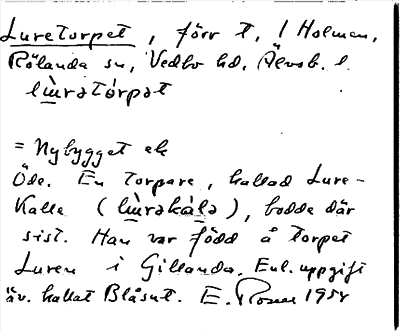 Luretorpet, förr t. / Holmen,
Rölanda sn, Vedbo hd, Älvsb. l.
lùrətórpət
= Nybygget ek
Öde. En torpare, kallad Lure-
Kalle (lùrəkàlə), bodde där
sist. Han var född å torpet
Luren i Gillanda. Enl. uppgift
äv. kallat Blåsut. E. 1954